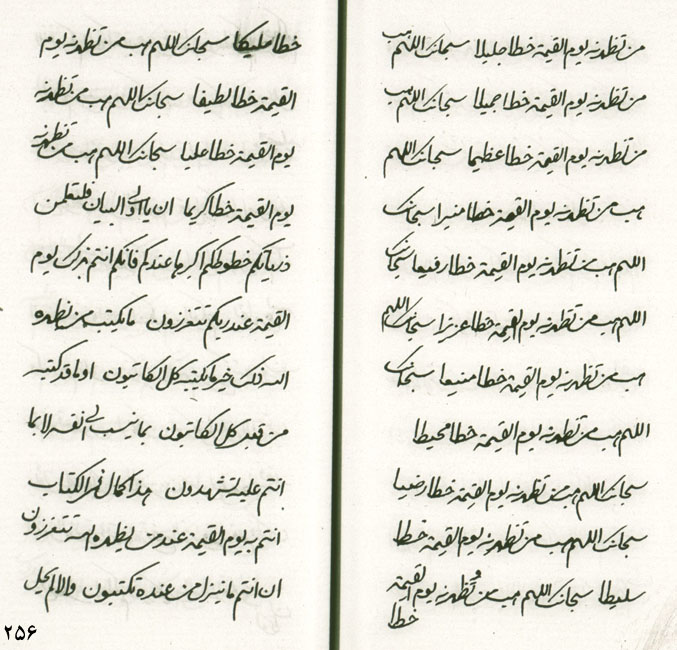 من تظهرنه يوم القيمة خطا جليلا سبحانك اللهم هب
من تظهرنه يوم القيمة خطا جميلا سبحانك اللهم هب
من تظهرنه يوم القيمة خطا عظيما سبحانك اللهم
هب من تظهرنه يوم القيمة خطا منيرا سبحانك
اللهم هب من تظهرنه يوم القيمة خطا رفيعا سبحانك
اللهم هب من تظهرنه يوم القيمة خطا عزيزا سبحانك اللهم
هب من تظهرنه يوم القيمة خطا منيعا سبحانك
اللهم هب من تظهرنه يوم القيمة خطا محيطا
سبحانك اللهم هب من تظهرنه يوم القيمة خطا رضيا
سبحانك اللهم هب من تظهرنه يوم القيمة خطا
سليطا سبحانك اللهم هب من تظهرنه يوم القيمة
خطا
خطا مليكا سبحانك اللهم هب من تظهرنه يوم
القيمة خطا لطيفا سبحانك اللهم هب من تظهرنه
يوم القيمة خطا عليا سبحانك اللهم هب من تظهرنه
يوم القيمة خطا كريما ان يا اولى البيان فلتعلمن
ذرياتكم خطوطكم اكبر ما عندكم فانكم انتم بذلك يوم
القيمة عند ربكم تتعززون ما يكتب من يظهره
الله ذلك خير ما يكتبه كل الكاتبون او ما قد كتبه
من قبل كل الكاتبون بما ينسب الى نفسه لا بما
انتم عليه تشهدون هذا كمال فى الكتاب
انتم به يوم القيمة عند من يظهره الله تتعززون
ان انتم ما ينزل من عنده تكتبون والا لم يحل
۲۵۶